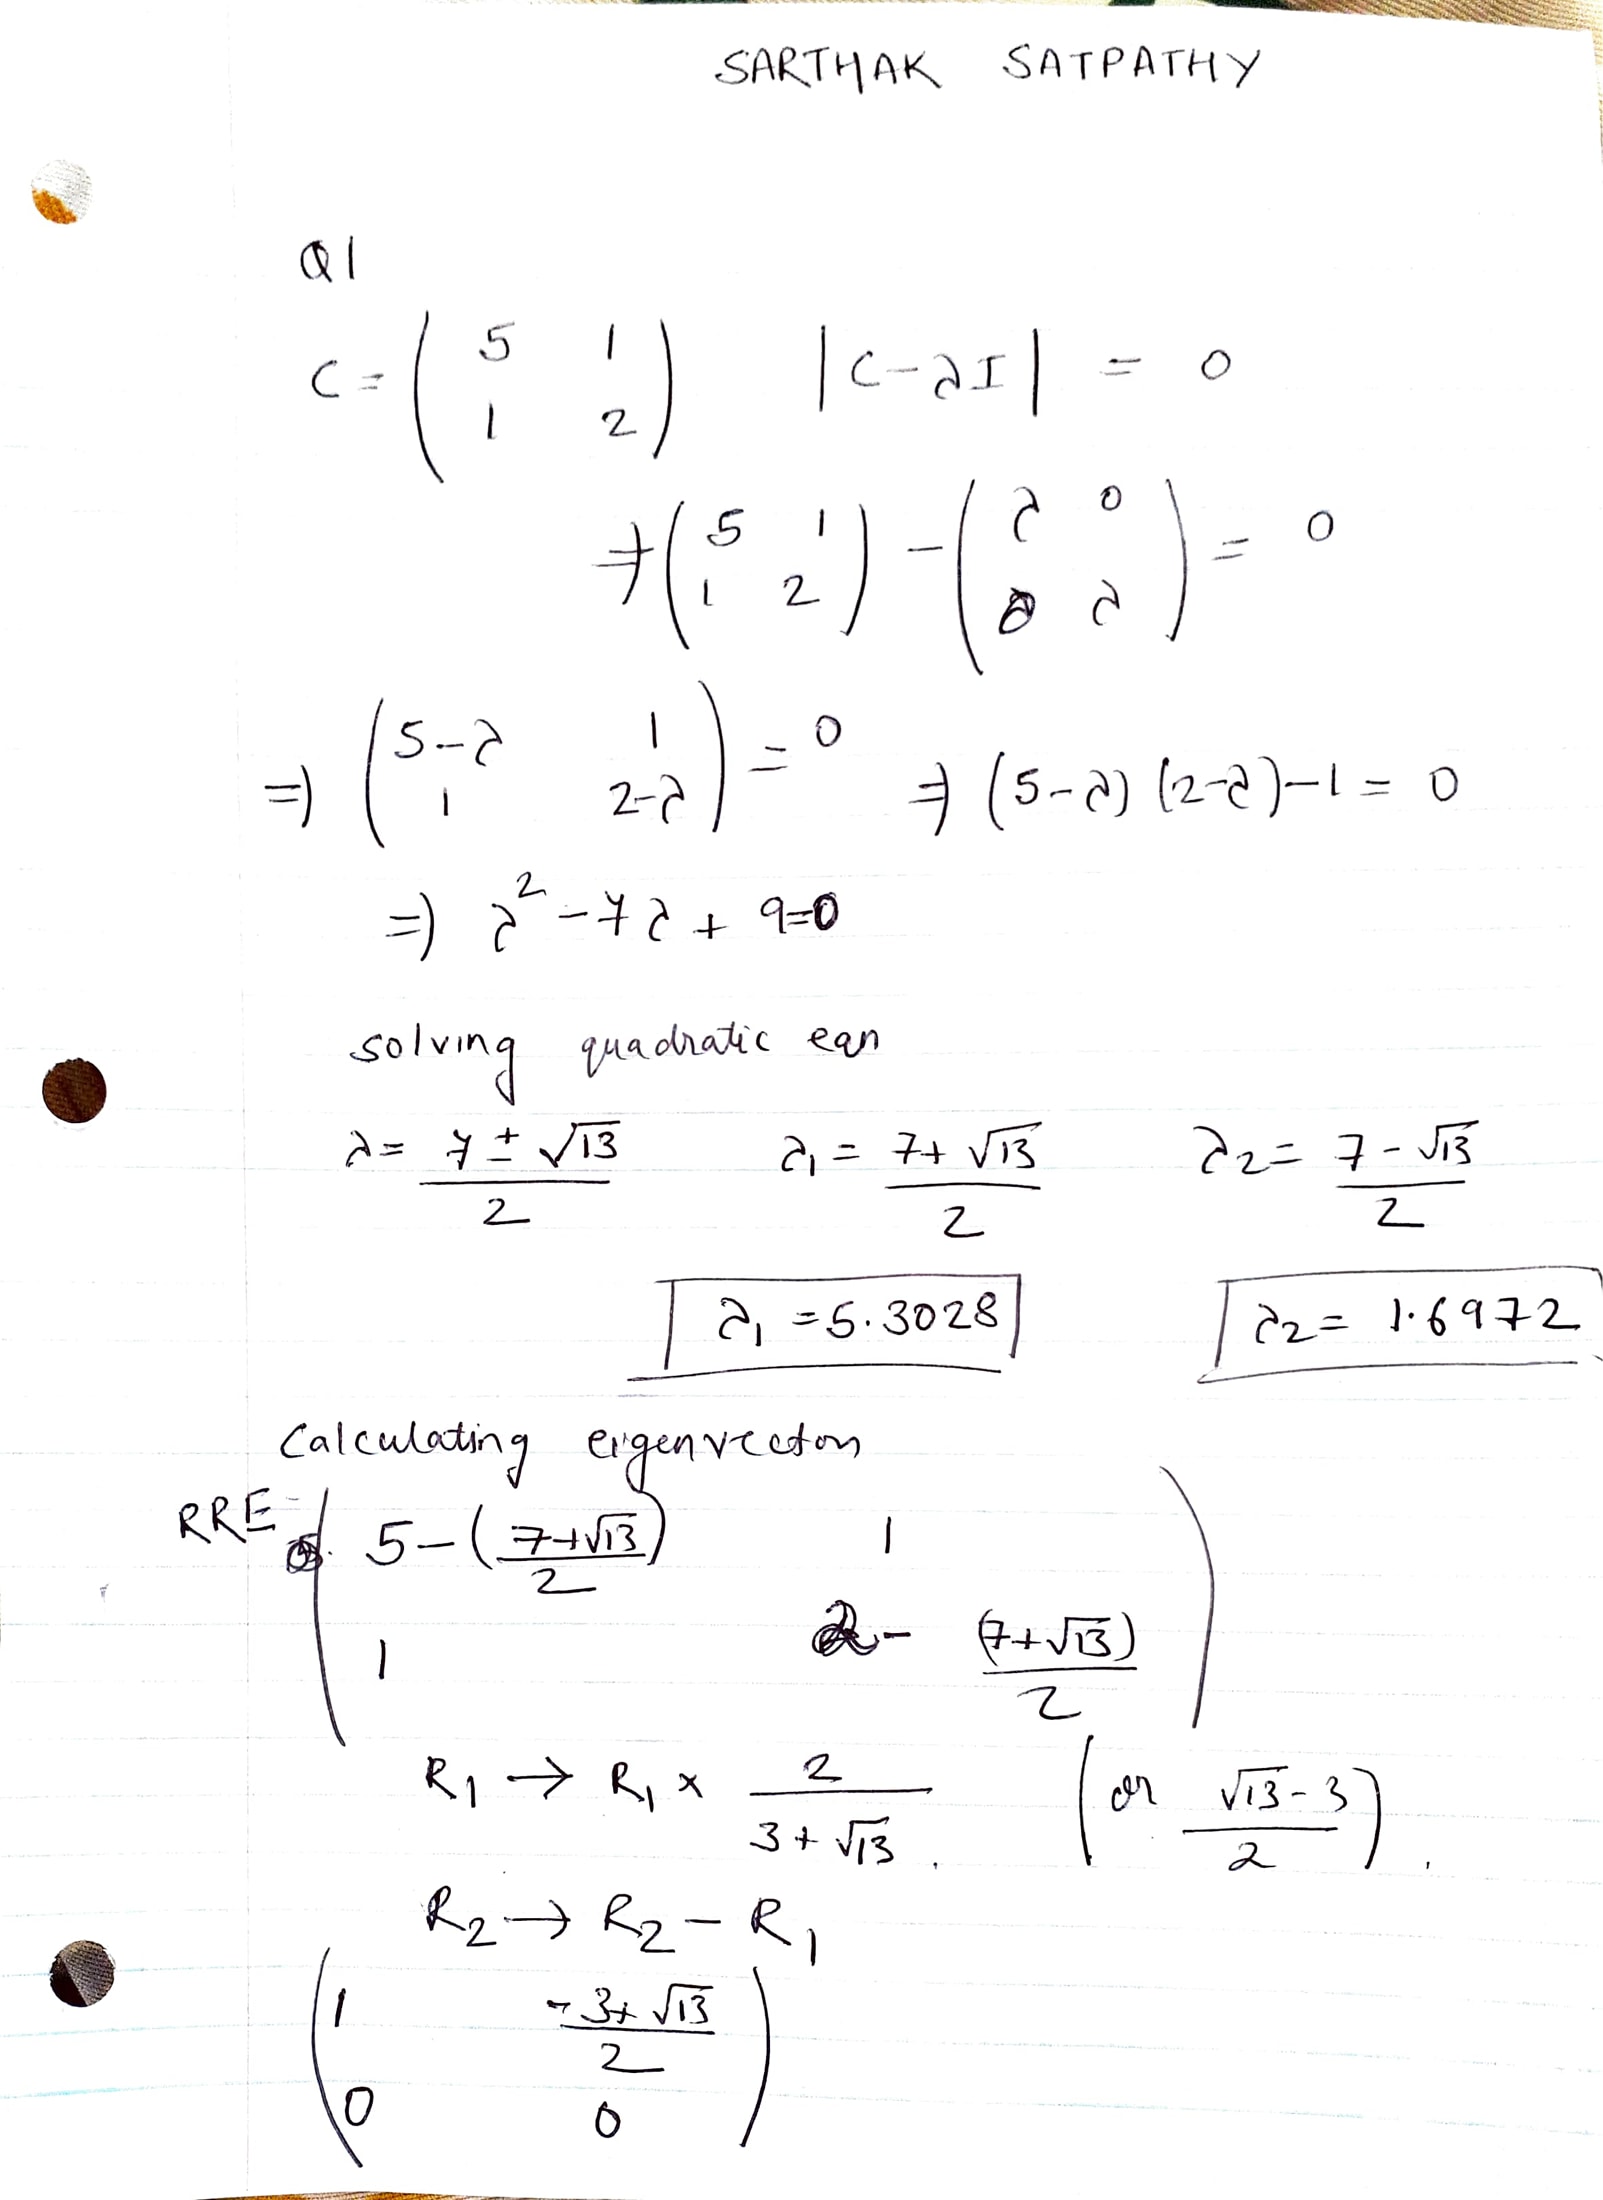 SARTHAK SATPATHY
Q1
C = ( 5 1 ; 1 2 ) |C - λI| = 0
⇒ ( 5 1 ; 1 2 ) - ( λ 0 ; 0 λ ) = 0
⇒ ( 5-λ 1 ; 1 2-λ ) = 0 ⇒ (5-λ) (2-λ) - 1 = 0
⇒ λ² - 7λ + 9 = 0
solving quadratic eqn
λ = (7 ± √13)/2 λ₁ = (7 + √13)/2 λ₂ = (7 - √13)/2
λ₁ = 5.3028 λ₂ = 1.6972
Calculating eigenvectors
RRE ( 5 - (7+√13)/2 1 ; 1 2 - (7+√13)/2 )
R₁ → R₁ × 2/(3 + √13) . ( or (√13 - 3)/2 ) .
R₂ → R₂ - R₁
( 1 -(3+√13)/2 ; 0 0 )